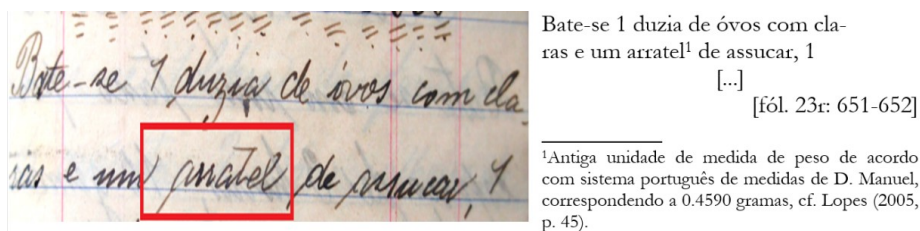 Bate-se 1 duzia de óvos com cla-
ras e um arratel de assucar, 1
Bate-se 1 duzia de óvos com cla-
ras e um arratel¹ de assucar, 1
[...]
[fól. 23r: 651-652]
¹Antiga unidade de medida de peso de acordo
com sistema português de medidas de D. Manuel,
correspondendo a 0.4590 gramas, cf. Lopes (2005,
p. 45).